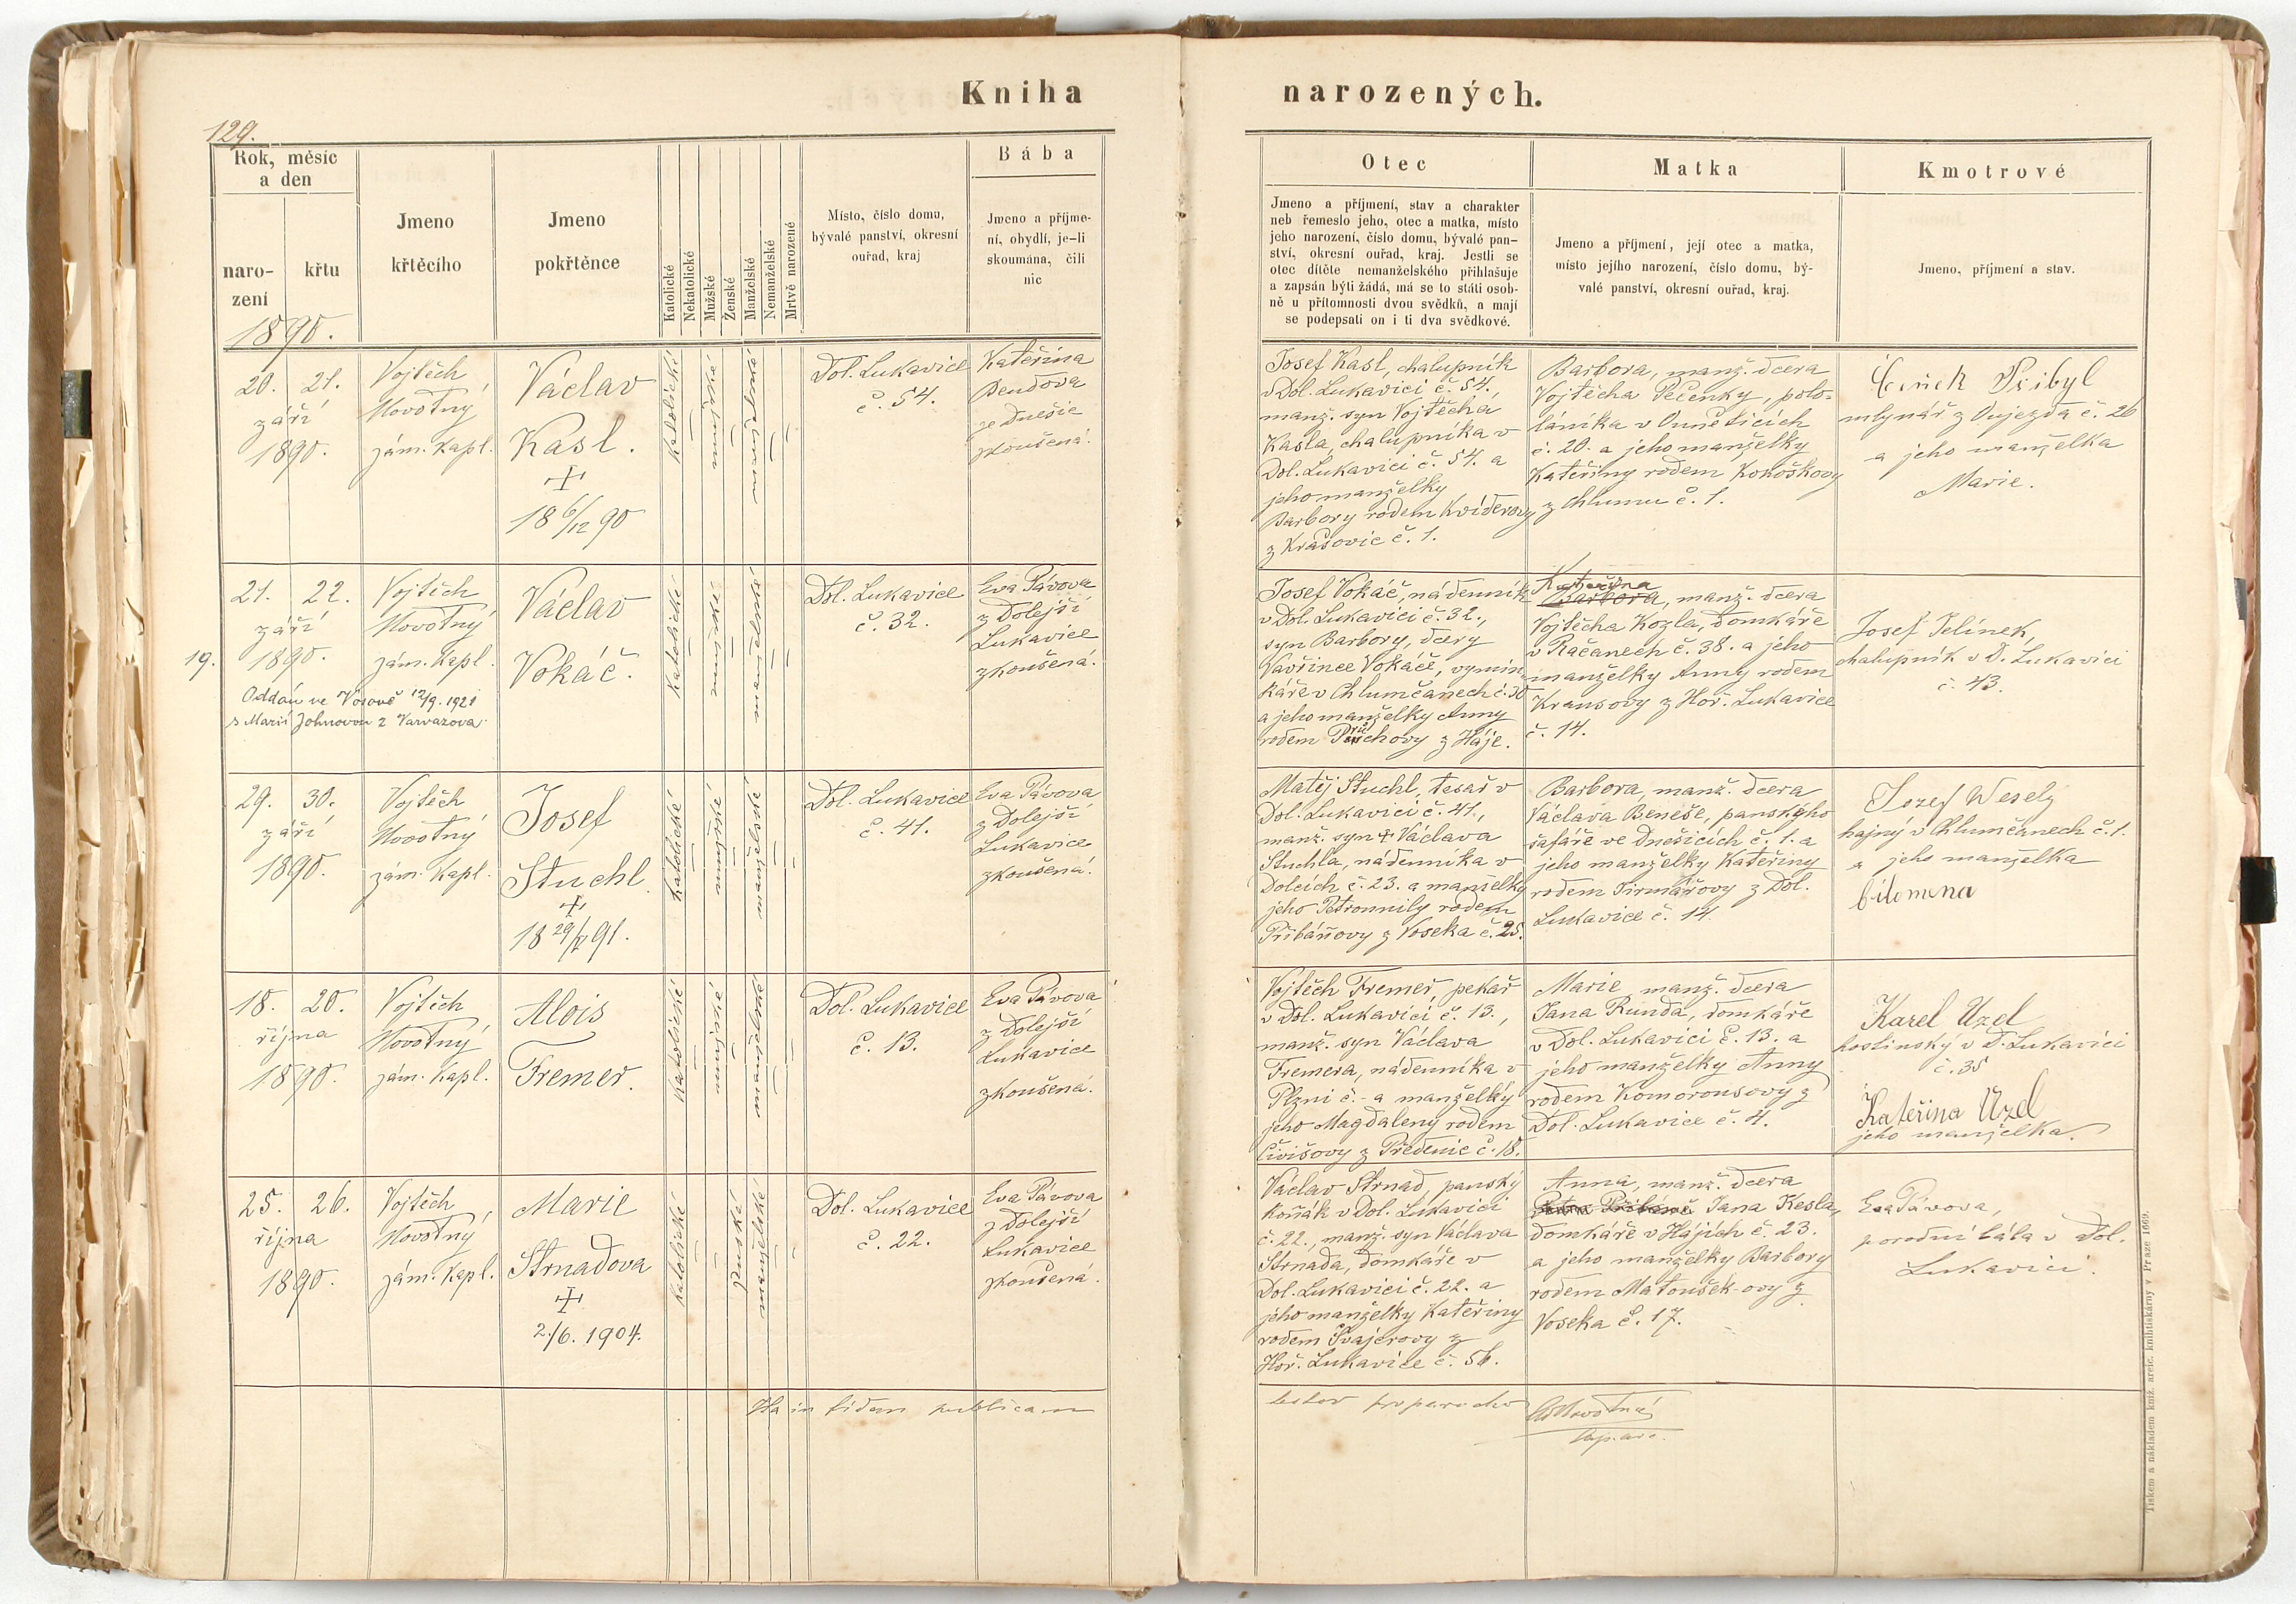 Kniha
narozených.
129.
Rok, měsíc
a den
naro-
zení
křtu
1890.
Jmeno
křtěcího
Jmeno
pokřtěnce
Katolické
Nekatolické
Mužské
Ženské
Manželské
Nemanželské
Mrtvě narozené
Místo, číslo domu,
bývalé panství, okresní
ouřad, kraj
Bába
Jmeno a příjme-
ní, obydlí, je-li
skoumána, čili
nic
Otec
Jmeno a příjmení, stav a charakter
neb řemeslo jeho, otec a matka, místo
jeho narození, číslo domu, bývalé pan-
ství, okresní ouřad, kraj. Jestli se
otec dítěte nemanželského přihlašuje
a zapsán býti žádá, má se to státi osob-
ně u přítomnosti dvou svědků, a mají
se podepsati on i ti dva svědkové.
Matka
Jmeno a příjmení, její otec a matka,
místo jejího narození, číslo domu, bý-
valé panství, okresní ouřad, kraj.
Kmotrové
Jmeno, příjmení a stav.
20. 21.
září
1890.
Vojtěch
Novotný
zám. kapl.
Václav
Kasl.
+
18 6/12 90
katolické
mužské
manželské
Dol. Lukavice
č. 54.
Kateřina
Bendova
ze Dnešic
zkoušená.
Josef Kasl, chalupník
v Dol. Lukavici č. 54.,
manž. syn Vojtěcha
Kasla, chalupníka v
Dol. Lukavici č. 54. a
jeho manželky
Barbory rodem Kvíderovy
z Krasovic č. 1.
Barbora, manž. dcera
Vojtěcha Pečenky, polo-
láníka v Ouněticích
č. 20. a jeho manželky
Kateřiny rodem Kokoškovy
z Chlumu č. 1.
Čeněk Přibyl
mlynář z Oujezda č. 26
a jeho manželka
Marie.
19.
21. 22.
září
1890.
Oddán ve Vósově 12/9. 1921
s Marií Johnovou z Varvazova.
Vojtěch
Novotný
zám. kapl.
Václav
Vokáč.
katolické
mužské
manželské
Dol. Lukavice
č. 32.
Eva Pávova
z Dolejší
Lukavice
zkoušená.
Josef Vokáč, nádenník
v Dol. Lukavici č. 32.,
syn Barbory, dcery
Vavřince Vokáče, výmin-
káře v Chlumčanech č. 30
a jeho manželky Anny
rodem chovy z Háje.
Kateřina
Barbora, manž. dcera
Vojtěcha Kozla, domkáře
v Račanech č. 38. a jeho
manželky Anny rodem
Krausovy z Hoř. Lukavice
č. 14.
Josef Jelínek,
chalupník v D. Lukavici
č. 43.
29. 30.
září
1890.
Vojtěch
Novotný
zám. kapl.
Josef
Stuchl.
+
18 29/ 91.
katolické
mužské
manželské
Dol. Lukavice
č. 41.
Eva Pávova
z Dolejší
Lukavice
zkoušená.
Matěj Stuchl, tesař v
Dol. Lukavici č. 41.,
manž. syn + Václava
Stuchla, nádenníka v
Dolcích č. 23. a manželky
jeho Petronnily rodem
Přibáňovy z Voseka č. 25.
Barbora, manž. dcera
Václava Beneše, panského
šafáře ve Dnešicích č. 1. a
jeho manželky Kateřiny
rodem Tirmářovy z Dol.
Lukavice č. 14.
Jozef Wesely
hajný v Chlumčanech č. 1.
a jeho manželka
filomena
18. 20.
října
1890.
Vojtěch
Novotný
zám. kapl.
Alois
Fremer.
katolické
mužské
manželské
Dol. Lukavice
č. 13.
Eva Pávova
z Dolejší
Lukavice
zkoušená.
Vojtěch Fremer, pekař
v Dol. Lukavici č. 13.,
manž. syn Václava
Fremera, nádenníka v
Plzni č. - a manželky
jeho Magdaleny rodem
Čivišovy z Předenic č. 18.
Marie, manž. dcera
Jana Runda, domkáře
v Dol. Lukavici č. 13. a
jeho manželky Anny
rodem Komorousovy z
Dol. Lukavice č. 4.
Karel Uzel
hostinský v D. Lukavici
č. 35
Kateřina Uzel
jeho manželka.
25. 26.
října
1890.
Vojtěch
Novotný
zám. kapl.
Marie
Strnadova
+
2./6. 1904.
katolické
ženské
manželské
Dol. Lukavice
č. 22.
Eva Pávova
z Dolejší
Lukavice
zkoušená.
Václav Strnad, panský
koňák v Dol. Lukavici
č. 22., manž. syn Václava
Strnada, domkáře v
Dol. Lukavici č. 22. a
jeho manželky Kateřiny
rodem Švajcrovy z
Hoř. Lukavice č. 56.
Anna, manž. dcera
Jana Kesla,
domkáře v Hájích č. 23.
a jeho manželky Barbory
rodem Matoušek-ovy z
Voseka č. 17.
Eva Pávova,
porodní bába v Dol.
Lukavici.
Ita in fidem publicam
testor pro parocho
Novotný
Tiskem a nákladem kníž. arcib. knihtiskárny v Praze 1669.